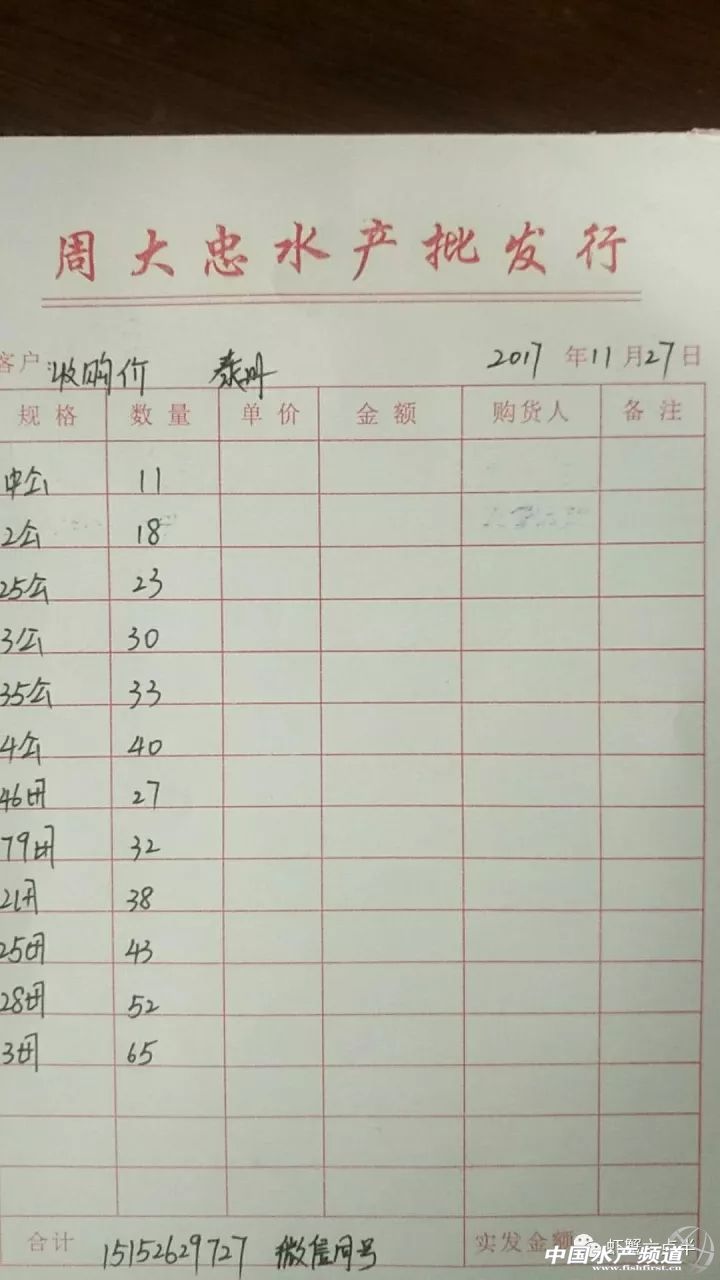 周大忠水产批发行
客户:收购价 泰州 2017年11月27日
规格 数量 单价 金额 购货人 备注
中公 11
2公 18
25公 23
3公 30
35公 33
4公 40
46母 27
79母 32
21母 38
25母 43
28母 52
3母 65
合计 15152629727 微信同号 实发金额
虾蟹六点半
中国水产频道
www.fishfirst.cn